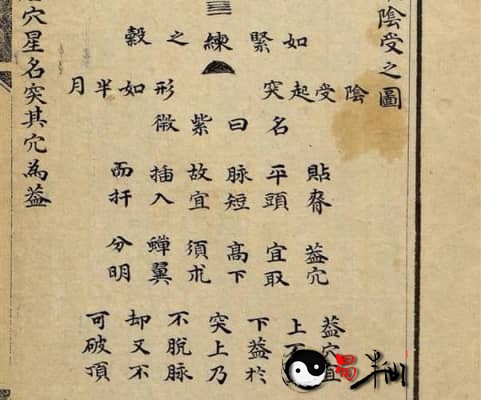 陰受之圖
如緊練之穀
陰受起突
形如半月
名曰紫微
貼脊
平頭
脉短
故宜
插入
而扦
葢穴
宜取
高下
須朮
蟬翼
分明
葢穴宜
上
下葢於
突上乃
不脫脉
却又不
可破頂
穴星名突其穴為葢
易半仙